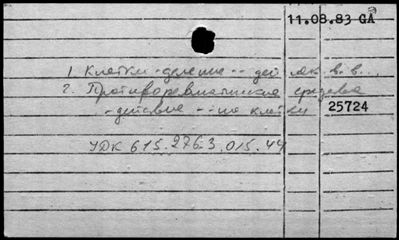 11.08.83 GA
1. Клетки - деление -- дей. лек. в. в...
2. Противоревматические средства
- действие -- на клетки
25724
УДК 615.276.3.015.44